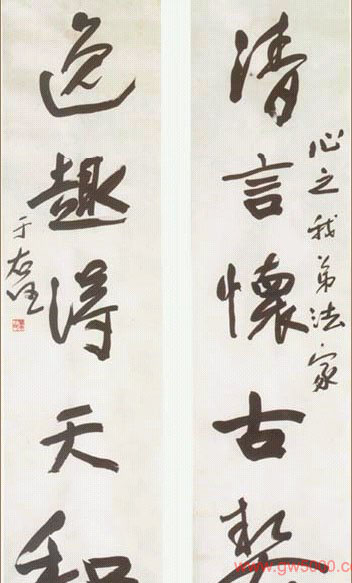 心之我弟法家
清言懷古契
逸趣得天和
于右任